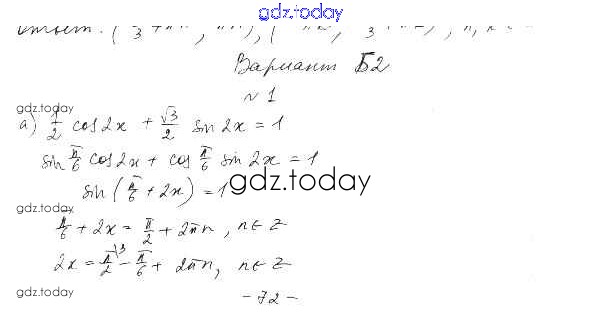 gdz.today
Вариант Б2
№ 1
gdz.today
а) 1/2 cos 2x + √3/2 sin 2x = 1
sin π/6 cos 2x + cos π/6 sin 2x = 1
gdz.today
sin (π/6 + 2x) = 1
gdz.today
π/6 + 2x = π/2 + 2πn, n ∈ Z
2x = π/2 \3 - π/6 + 2πn, n ∈ Z
gdz.today
- 72 -